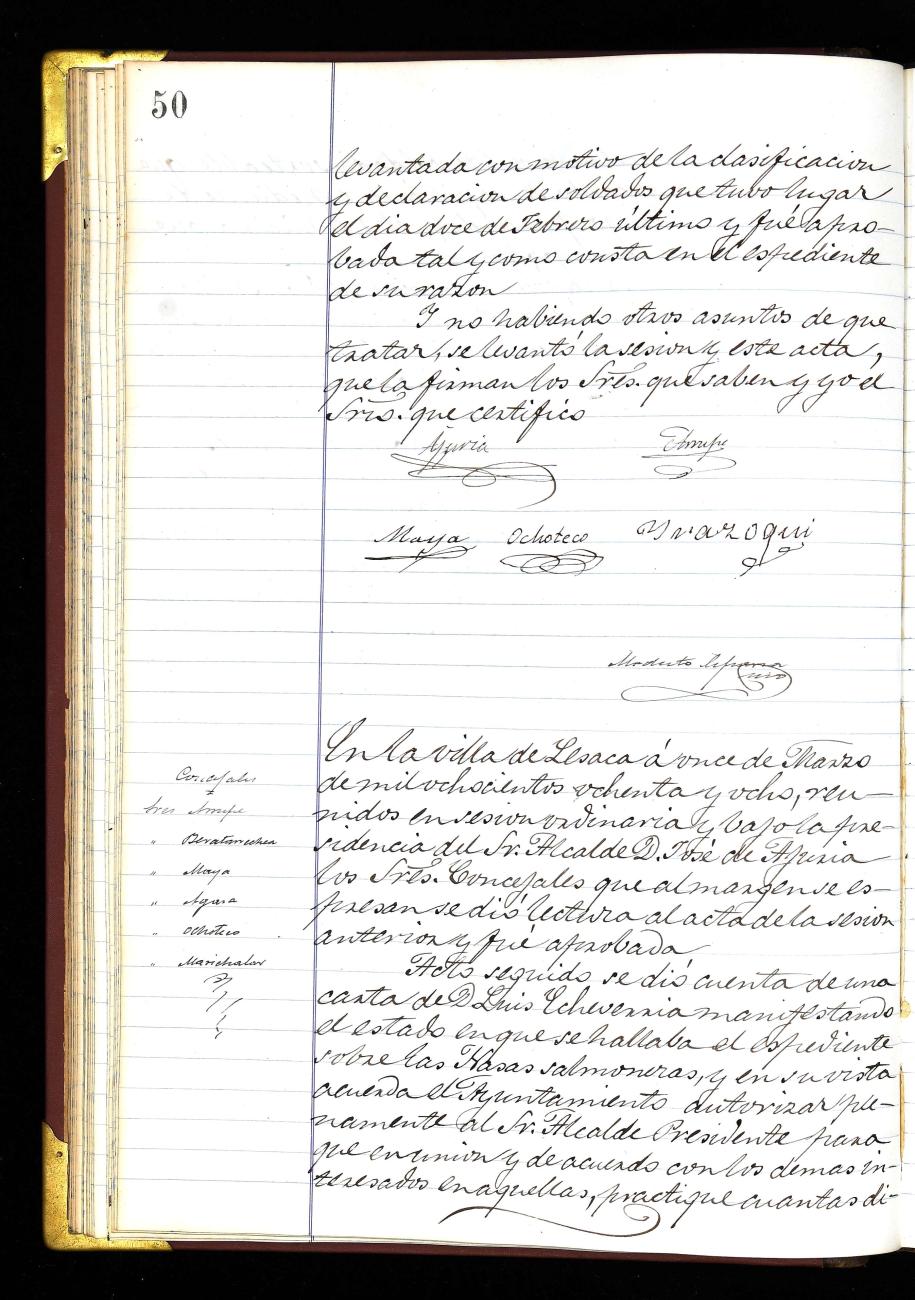 50
levantada con motivo de la clasificacion
y declaracion de soldados que tubo lugar
el dia doce de Febrero último y fué apro-
bada tal y como consta en el espediente
de su razon
Y no habiendo otros asuntos de que
tratar, se levantó la sesion y este acta,
que la firman los Sres. que saben y yo el
Srio. que certifico
Ajuria
Arrupe
Maya Ochoteco Yrazoqui
Modesto
En la villa de Lesaca á once de Marzo
de mil ochocientos ochenta y ocho, reu-
nidos en sesion ordinaria y bajo la pre-
sidencia del Sr. Alcalde D. José de Ajuria
los Sres. Concejales que al margen se es-
presan se dió lectura al acta de la sesion
anterior y fué aprobada
Concejales
Sres Arrupe
" Beratarrechea
" Maya
" Agara
" Ochoteco
" Marichalar
Acto seguido se dió cuenta de una
carta de D Luis Echeverria manifestando
el estado en que se hallaba el espediente
sobre las Nasas salmoneras, y en su vista
acuerda el Ayuntamiento autorizar ple-
namente al Sr. Alcalde Presidente para
que en union y de acuerdo con los demas in-
teresados en aquellas, practique cuantas di-